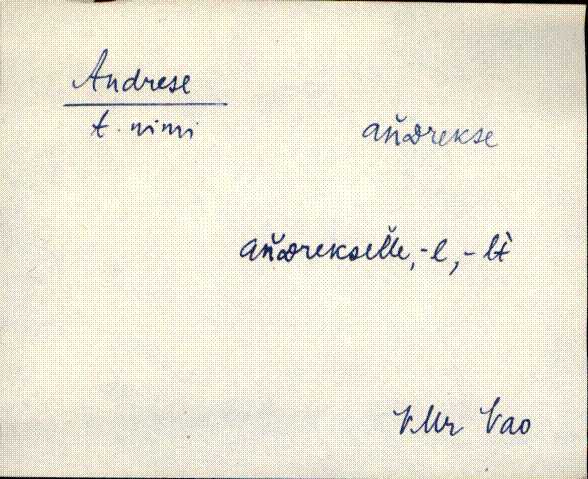 Andrese
t. nimi
ań̆drekse
ań̆drekselle, -l, -lt̀
VMr Vao